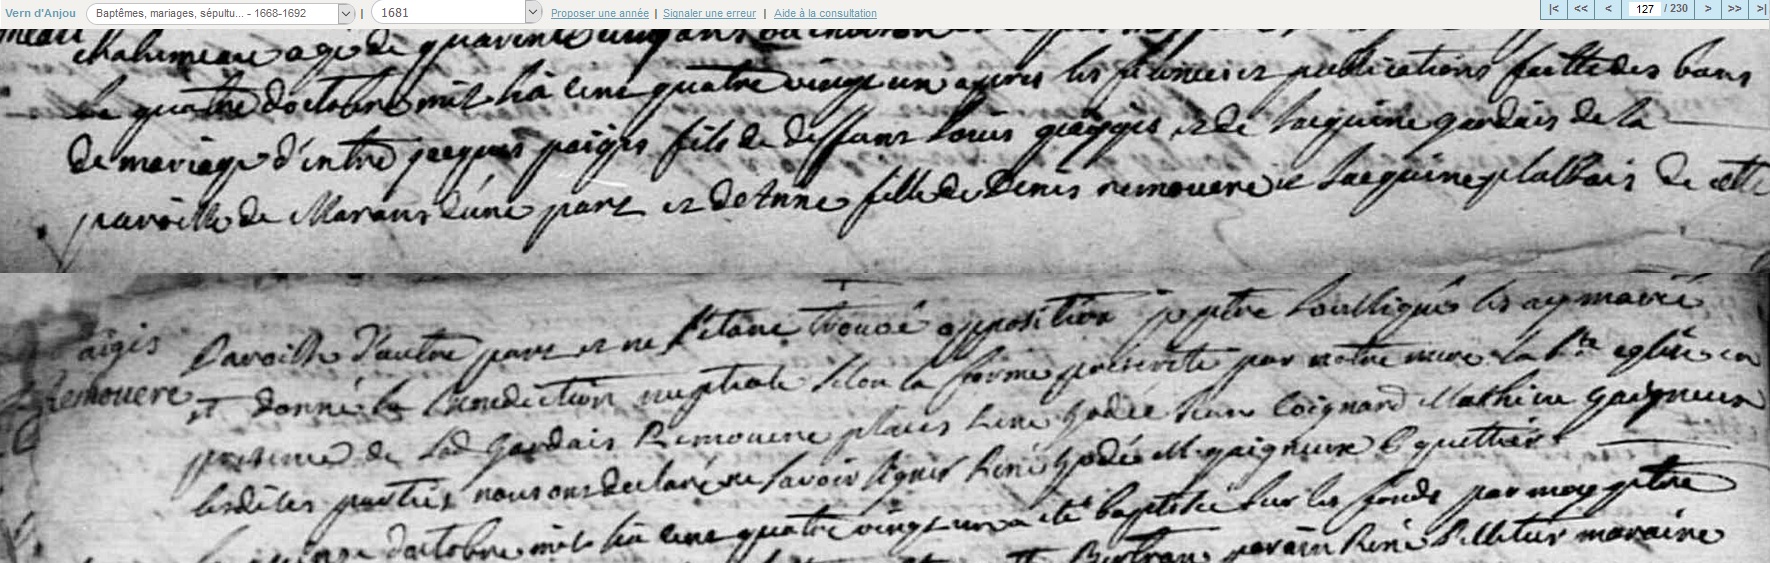 Vern d'Anjou Baptêmes, mariages, sépultu... - 1668-1692 | 1681 Proposer une année | Signaler une erreur | Aide à la consultation |< << < 127 / 230 > >> >|
chalumeau agé de quarente cinq ans ou environ
Le quatre doctobre mil six cent quatre vingt un apres les publications faittes des bans
de mariage d'entre jacques paigis fils de deffunt Louis paigis et de Jacquine gardais de la
paroisse de Marans d'une part et de Anne fille de Denis remouere et Jacquine de cette
paigis
Remouere
paroisse d'autre part et ne s'etant trouvé opposition je ptre soussigné les ay mariés
et donné la benediction nuptiale selon la forme prescrite par notre mere la Ste eglise en
presence de Gardais Remouere René hodée Jean Coignard Mathieu gaigneux
lesdites parties nous ont declaré ne savoir signer René hodée M. gaigneux
doctobre mil six cent quatre vingt un a eté baptisée sur les fonds par moy ptre
parain René maraine